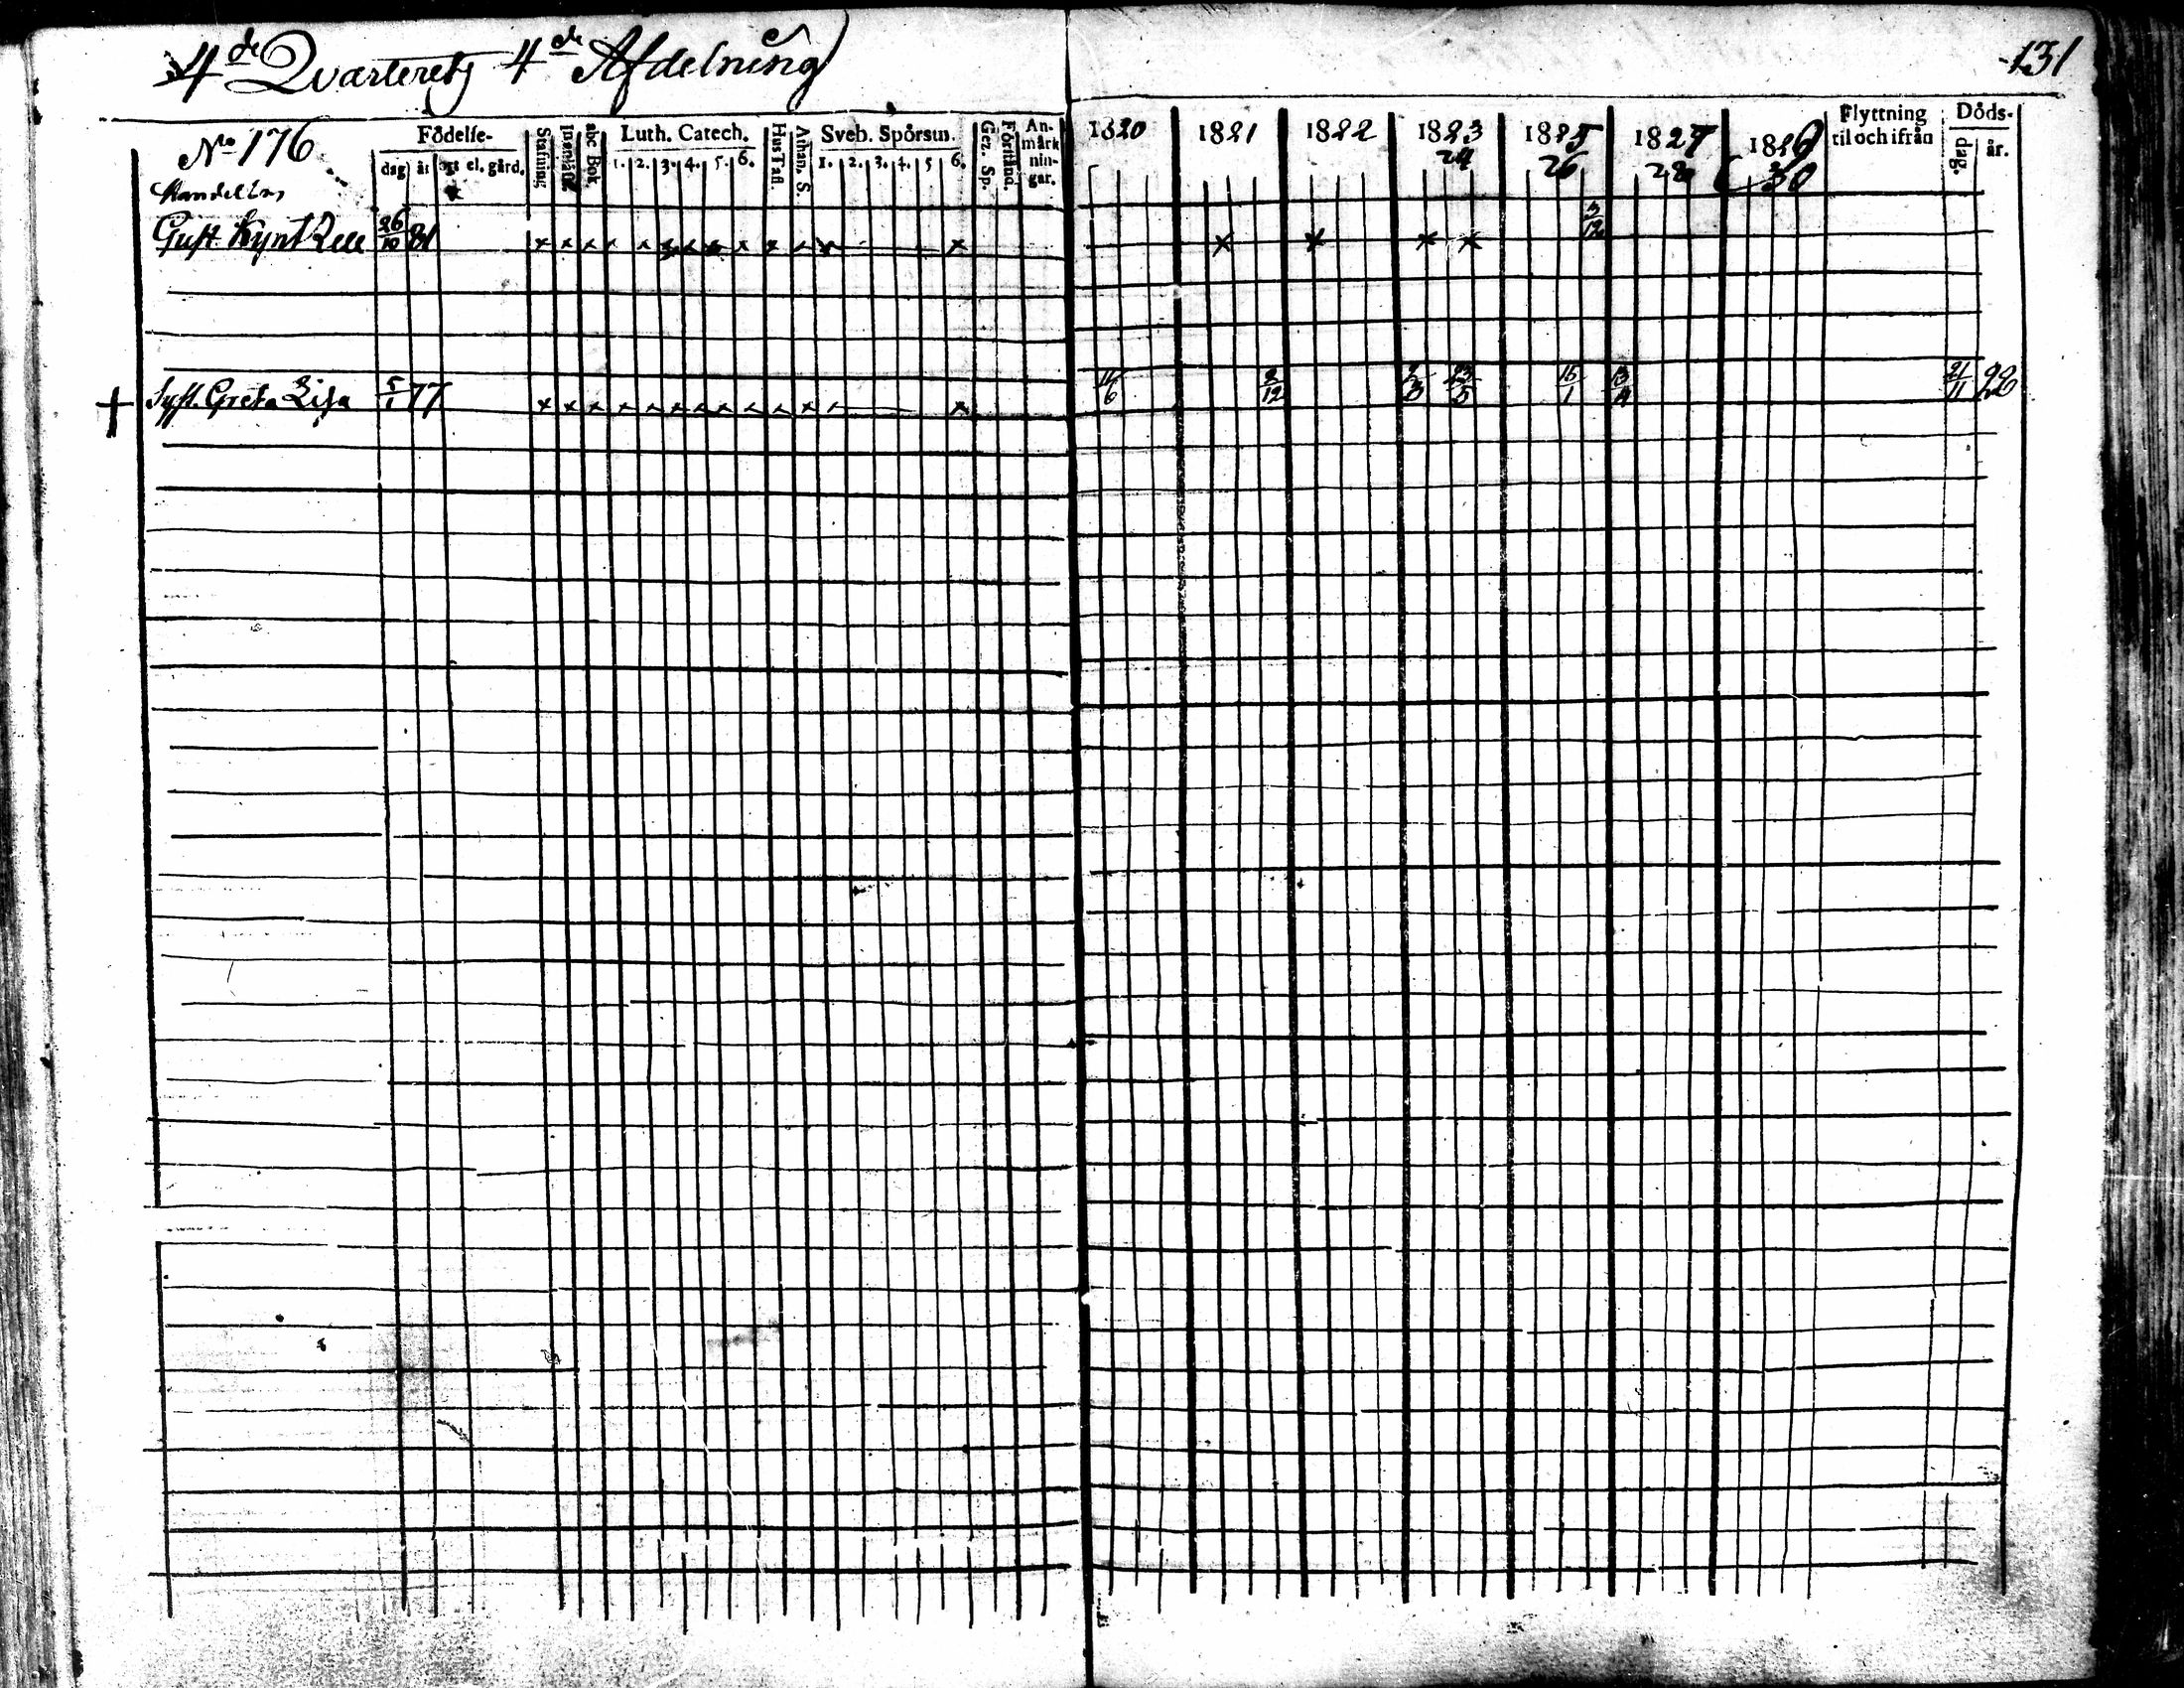 4de Qvarterets 4de Afdelning
131
No 176
Födelse-
dag år ort el. gård.
Stafning
Innanläsn.
abc Bok
Luth. Catech.
1. 2. 3. 4. 5. 6.
Hus Tafl.
Athan. S.
Sveb. Spörsm.
1. 2. 3. 4. 5 6.
Gez. Sp.
Förstånd.
An-
märk
nin-
gar.
1820 1821 1822 1823 1825 1827 1829
24 26 28 30
Flyttning
til och ifrån
Döds-
dag. år.
Gust. 26/10 81 x x x x x x x x x x x x x x x x x 3/12
Syst. Greta Lisa 5/1 77 x x x x x x x x x x x x x 11/6 2/12 23/5 16/1 21/11 28